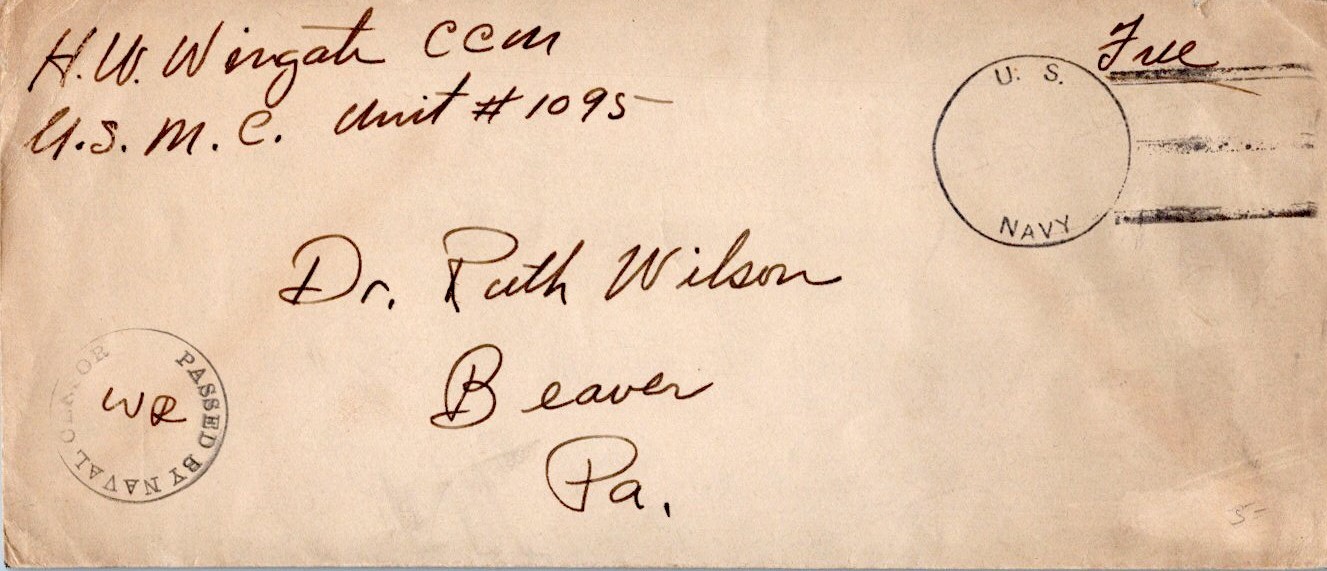 H.W. Wingate CCM
U.S. M.C. Unit #1095
Free
U. S.
NAVY
Dr. Ruth Wilson
Beaver
Pa.
PASSED BY NAVAL CENSOR
WR
5-